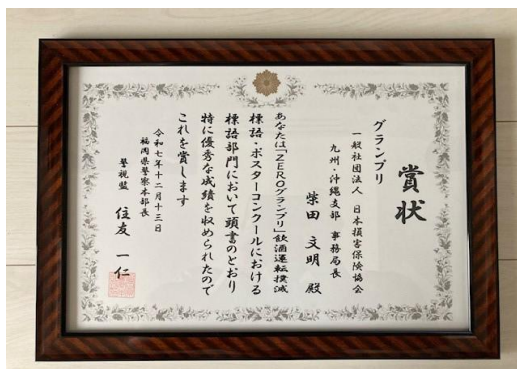 賞状
グランプリ
一般社団法人 日本損害保険協会
九州・沖縄支部 事務局長
柴田 文明 殿
あなたは「ZEROグランプリ」飲酒運転撲滅
標語・ポスターコンクールにおける
標語部門において頭書のとおり
特に優秀な成績を収められたので
これを賞します
令和七年十二月十三日
福岡県警察本部長
警視監 住友 一仁